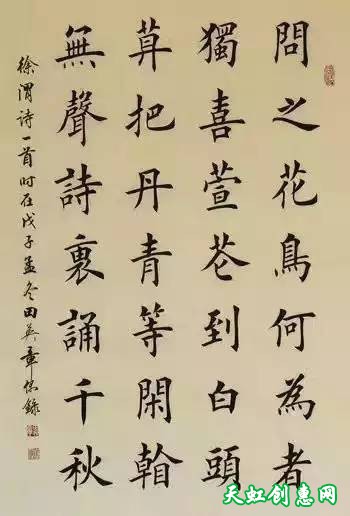 問之花鳥何為者
獨喜萱芲到白頭
把丹青等閑
無聲詩裏誦千秋
徐渭诗一首时在戊子孟冬田英章錄
天虹创惠网